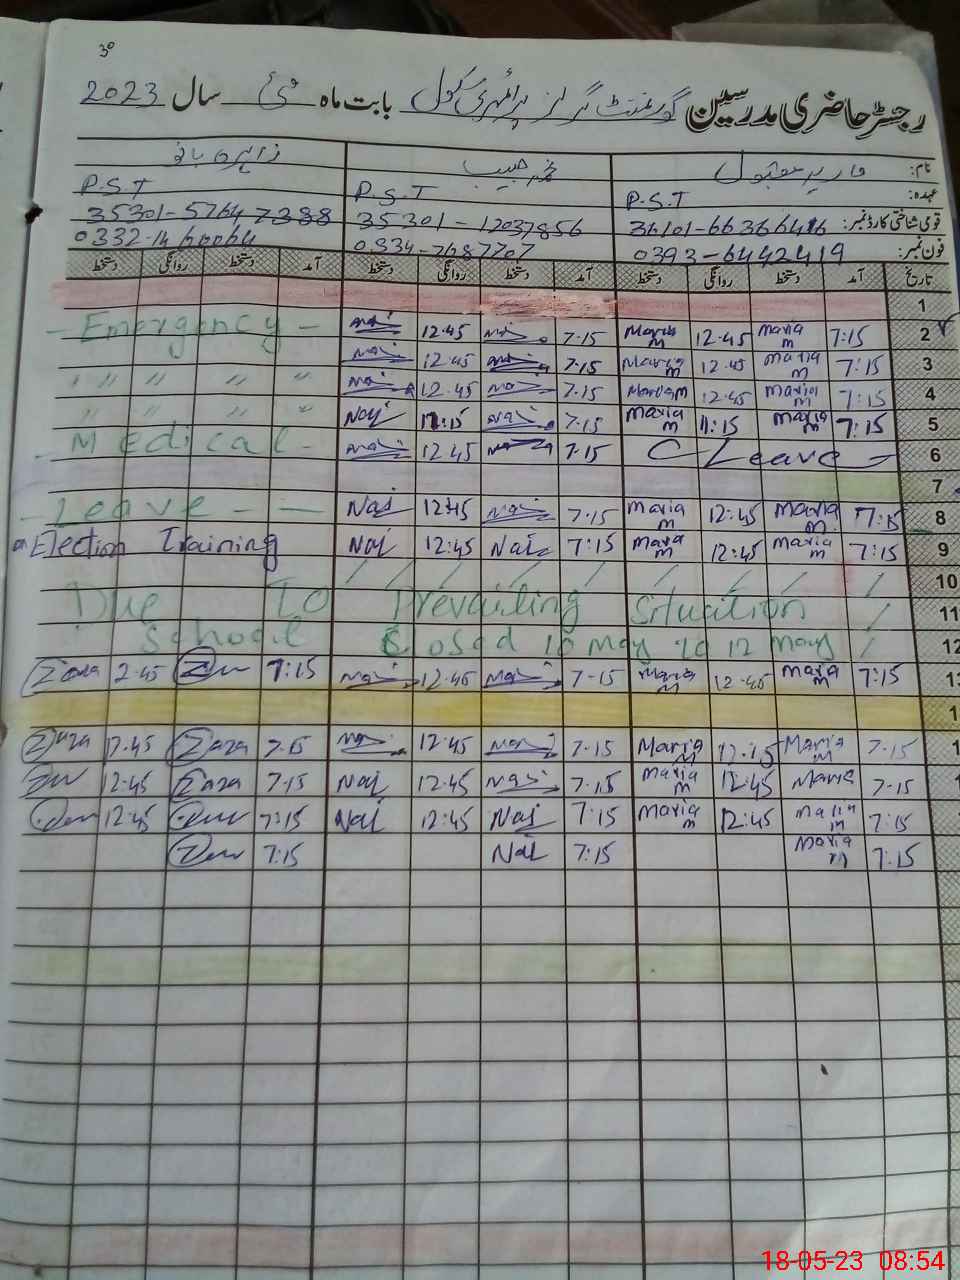 30
رجسٹر حاضری مدرسین گورنمنٹ گرلز پرائمری سکول بابت ماہ مئی سال 2023
نام: ماریہ مقبول حبیب زاہرہ بانو
عہدہ: P.S.T P.S.T P.S.T
قومی شناختی کارڈ نمبر: 35301-12037856 35301-5764 7388
فون نمبر: 0393-6442419 0334-7687707
تاریخ آمد دستخط روانگی دستخط آمد دستخط روانگی دستخط آمد دستخط روانگی دستخط
1
Emergency - 12:45 7-15 Maria m 12:45 maria m 7:15 2
12:45 7-15 Maria m 12:45 maria m 7:15 3
" " " " " 12:45 7-15 Maria m 12:45 Maria m 7:15 4
" " " " " Naj 11:15 7-15 maria m 11:15 maria m 7:15 5
Medical - 12:45 7-15 C Leave 6
7
Leave - - Naj 12:45 7:15 Maria m 12:45 Maria m 7:15 8
Election Training Naj 12:45 Naj 7:15 Maria m 12:45 maria m 7:15 9
10
Due To Prevailing Situation 11
School Closed 10 May To 12 May 12
Zara 2:45 7:15 12:45 7-15 Maria m 12:45 Maria m 7:15 13
1
Zara 12:45 Zara 7:15 12:45 7-15 Maria m 12:15 Maria m 7-15 1
12:45 Zara 7:15 Naj 12:45 7:15 Maria m 12:45 Maria 7-15 1
12:45 7:15 Naj 12:45 Naj 7:15 Maria m 12:45 maria m 7:15
7:15 Naj 7:15 Maria m 7:15
18-05-23 08:54